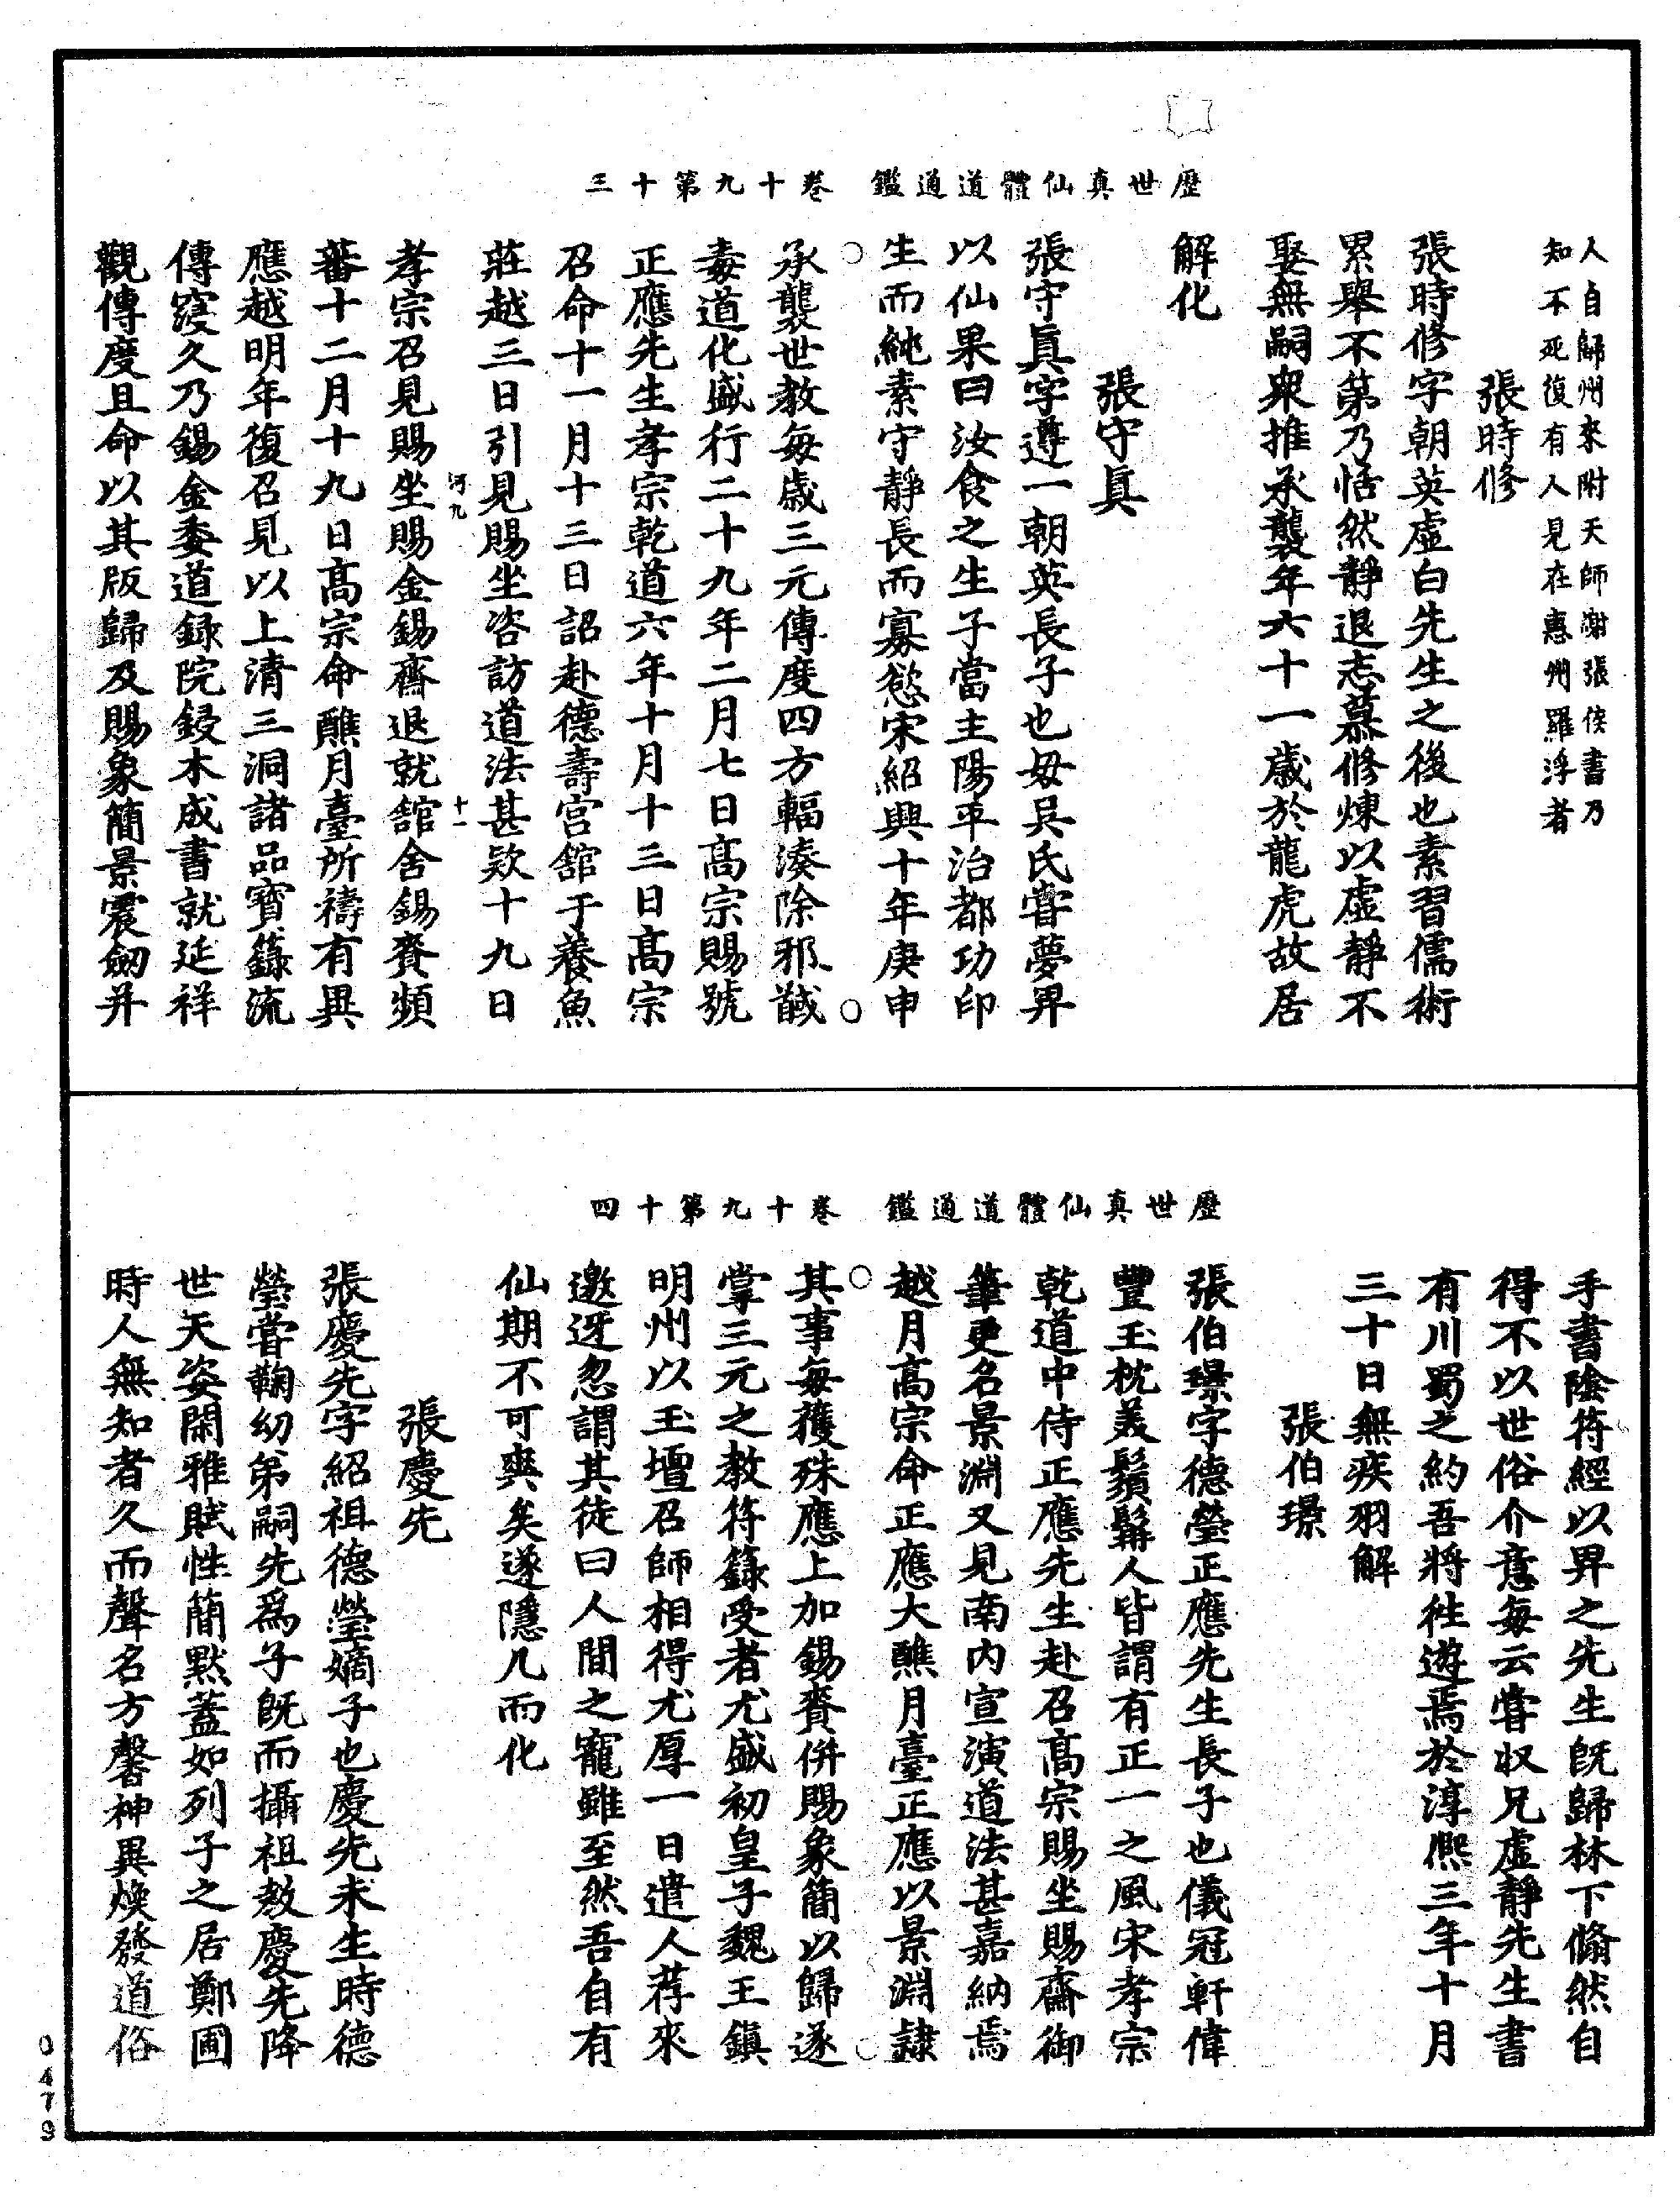 歷世真仙體道通鑑　卷十九第十三
人自歸州來附天師謝張俟書乃
知不死復有人見在惠州羅浮者
張時修
張時修字朝英虛白先生之後也素習儒術
累舉不第乃恬然靜退志慕修煉以虛靜不
娶無嗣衆推承襲年六十一歲於龍虎故居
解化
張守眞
張守眞字遵一朝英長子也母吳氏嘗夢畀
以仙果曰汝食之生子當主陽平治都功印
生而純素守靜長而寡慾宋紹興十年庚申
承襲世教每歲三元傳度四方輻湊除邪馘
毒道化盛行二十九年二月七日高宗賜號
正應先生孝宗乾道六年十月十三日高宗
召命十一月十三日詔赴德壽宮舘于養魚
莊越三日引見賜坐咨訪道法甚欵十九日
河九
十一
孝宗召見賜坐賜金錫齋退就舘舍錫賚頻
蕃十二月十九日高宗命醮月臺所禱有異
應越明年復召見以上清三洞諸品寶籙流
傳寖久乃錫金委道録院鋟木成書就延祥
觀傳度且命以其版歸及賜象簡景震劒并
歷世真仙體道通鑑　卷十九第十四
手書陰符經以畀之先生旣歸林下翛然自
得不以世俗介意每云嘗収兄虛靜先生書
有川蜀之約吾將徃遊焉於淳熈三年十月
三十日無疾羽解
張伯璟
張伯璟字德瑩正應先生長子也儀冠軒偉
豐玉枕美鬚髯人皆謂有正一之風宋孝宗
乾道中侍正應先生赴召高宗賜坐賜齋御
筆更名景淵又見南内宣演道法甚嘉納焉
越月高宗命正應大醮月臺正應以景淵隷
其事每獲殊應上加錫賚併賜象簡以歸遂
掌三元之教符籙受者尤盛初皇子魏王鎭
明州以玉壇召師相得尤厚一日遣人荐來
邀迓忽謂其徒曰人間之寵雖至然吾自有
仙期不可爽矣遂隱几而化
張慶先
張慶先字紹祖德瑩嫡子也慶先未生時德
瑩嘗鞠幼弟嗣先爲子旣而攝祖教慶先降
世天姿閑雅賦性簡默蓋如列子之居鄭圃
時人無知者久而聲名方馨神異煥發道俗
0479